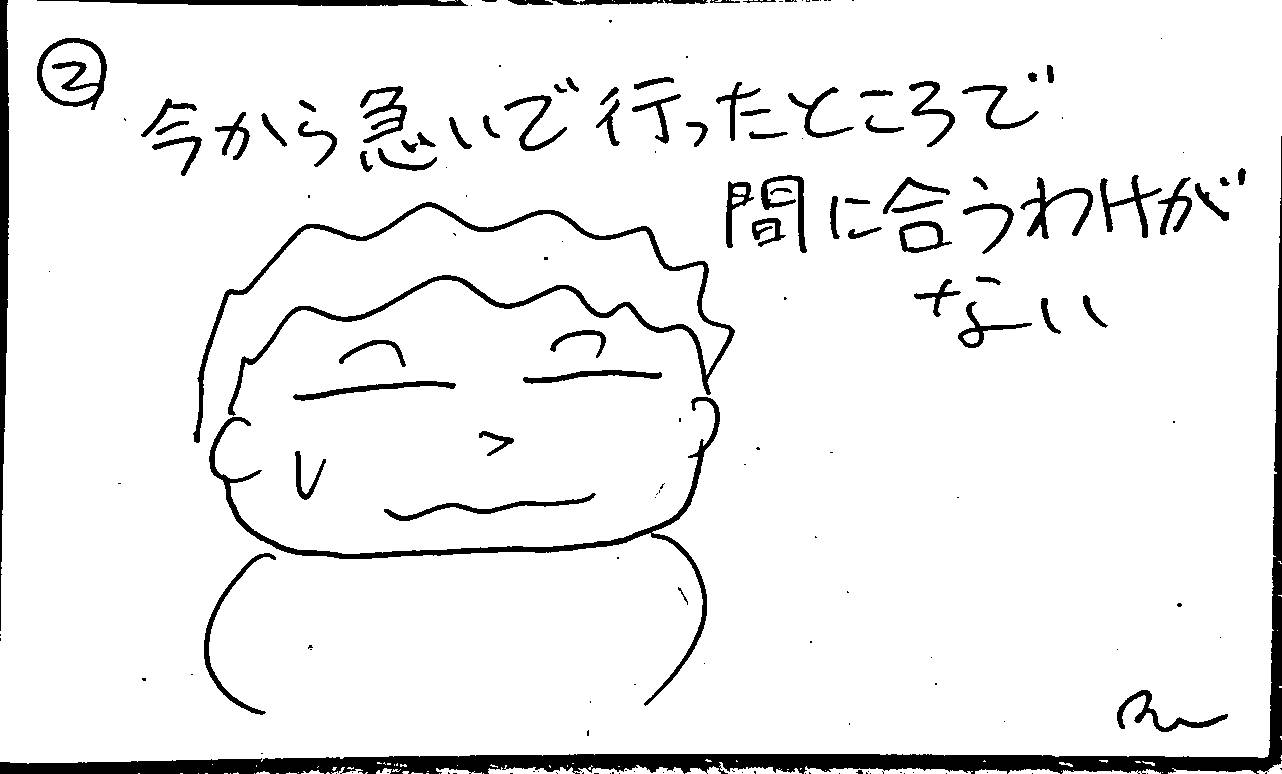 ②
今から急いで行ったところで
間に合うわけが
ない